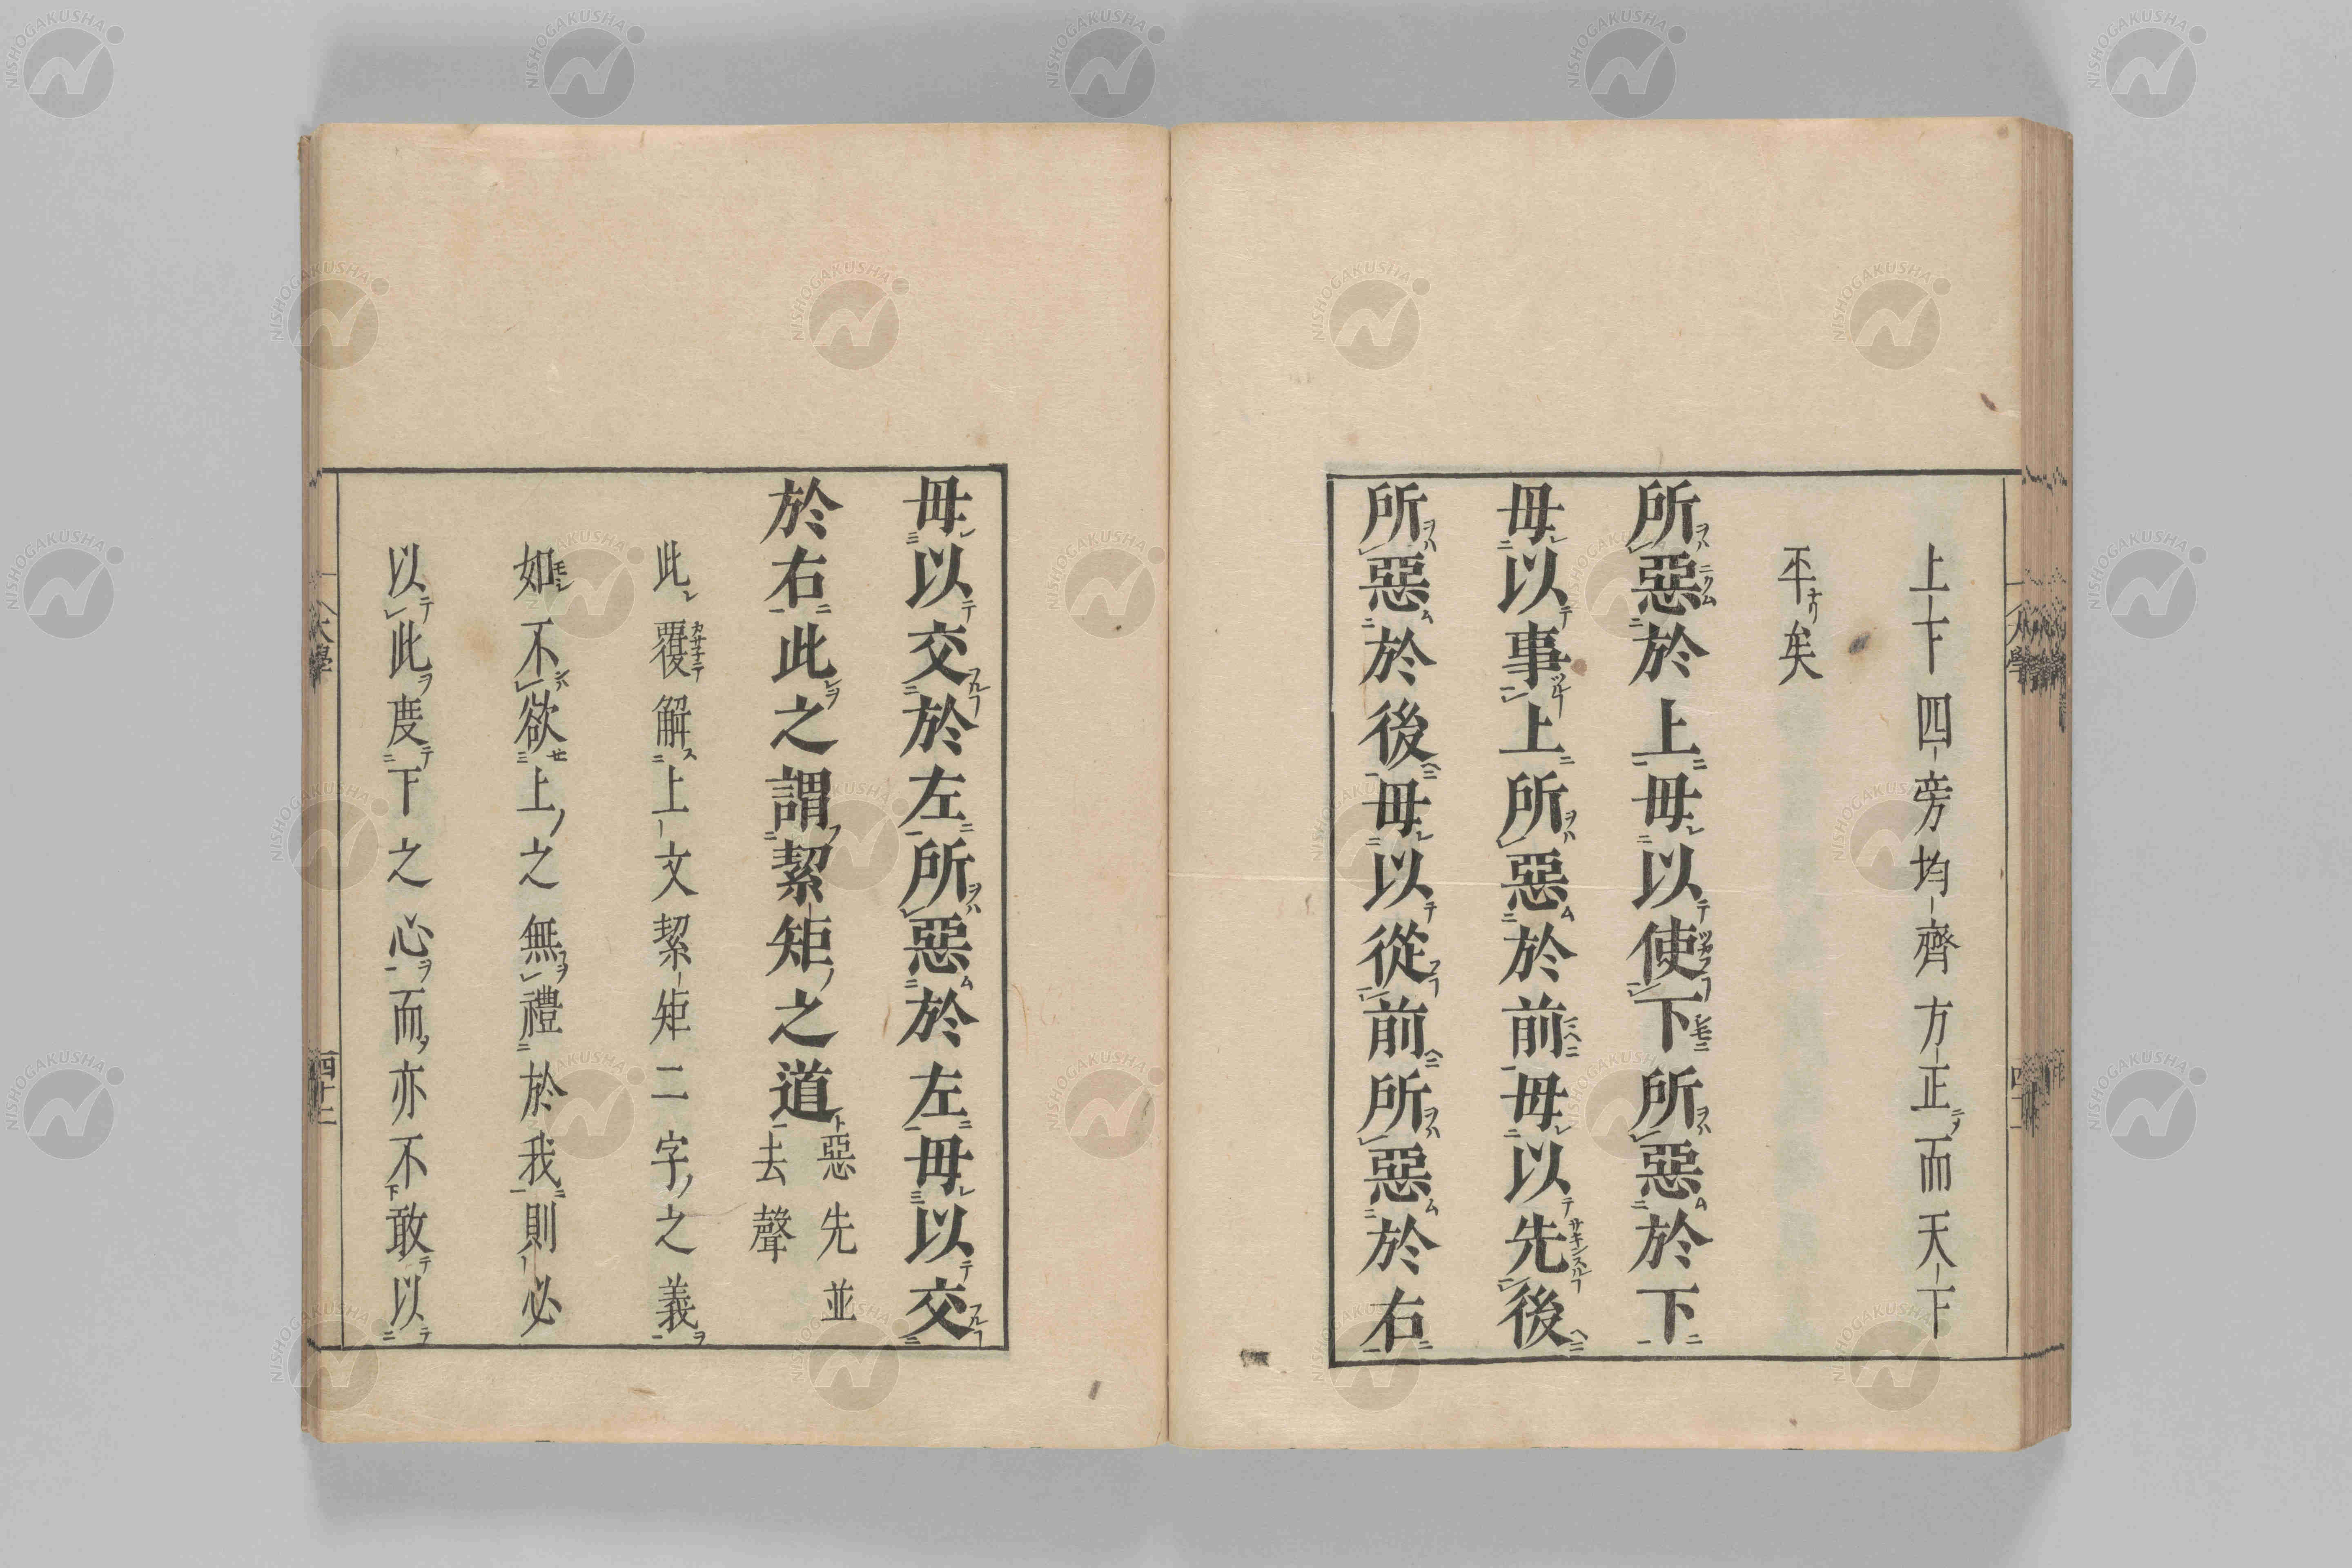 上下四旁均齊方正而天下
平矣
所惡於上毋以使下所惡於下
毋以事上所惡於前毋以先後
所惡於後毋以從前所惡於右
毋以交於左所惡於左毋以交
於右此之謂絜矩之道
惡先並
去聲
此覆解上文絜矩二字之義
如不欲上之無禮於我則必
以此度下之心而亦不敢以
大學
NISHOGAKUSHA